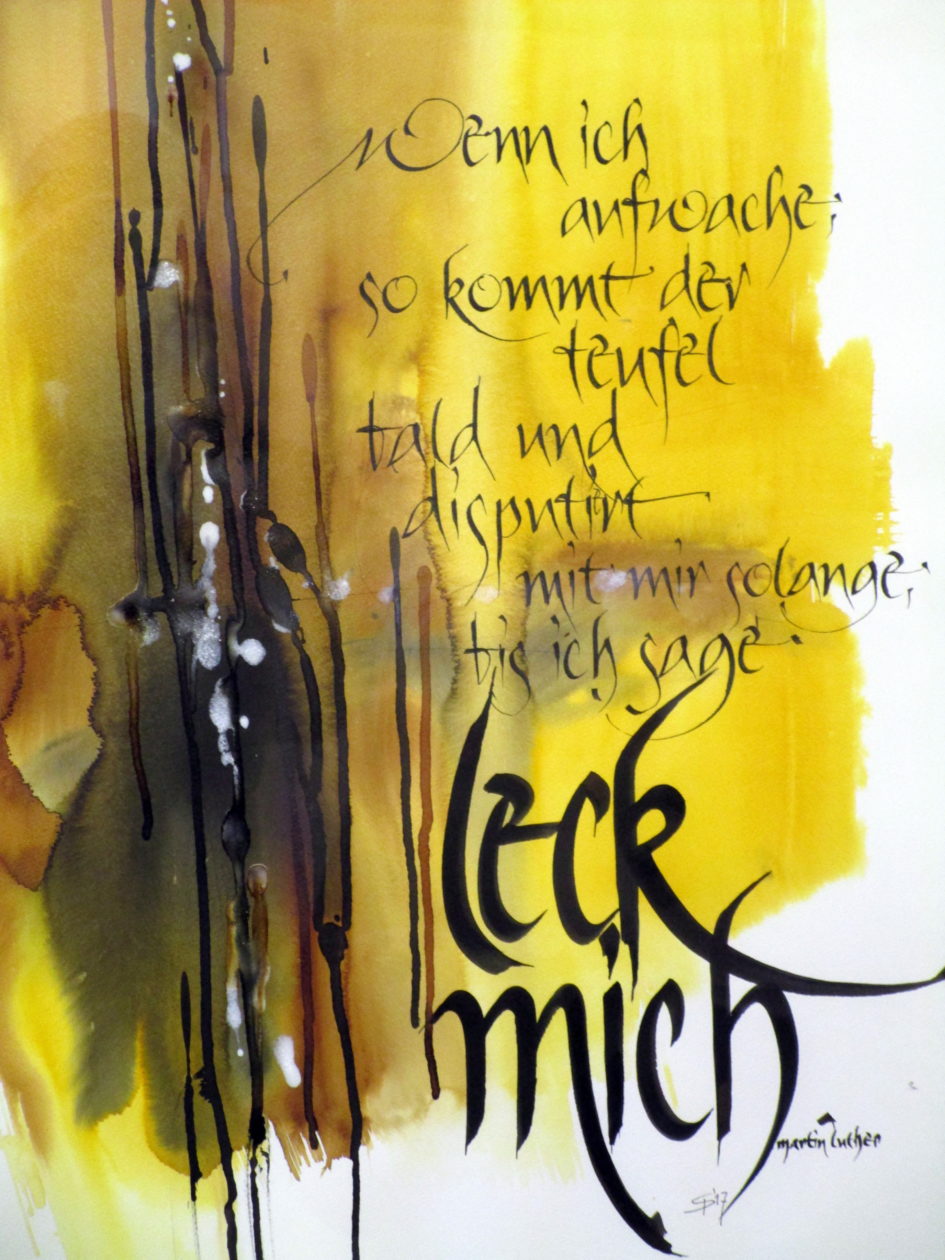 Wenn ich
aufwache,
so kommt der
teufel
bald und
disputirt
mit mir solange,
bis ich sage:
leck
mich
martin luther
'17